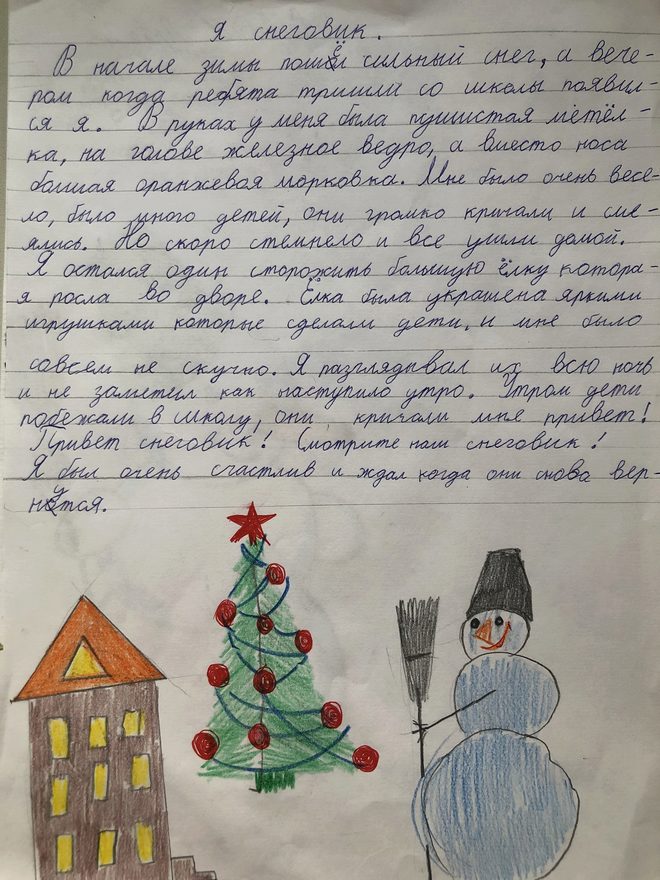 Я снеговик.
В начале зимы пошёл сильный снег, а вече-
ром когда ребята пришли со школы появил-
ся я. В руках у меня была пушистая метёл-
ка, на голове железное ведро, а вместо носа
большая оранжевая морковка. Мне было очень весе-
ло, было много детей, они громко кричали и сме-
ялись. Но скоро стемнело и все ушли домой.
Я остался один сторожить большую ёлку котора-
я росла во дворе. Ёлка была украшена яркими
игрушками которые сделали дети, и мне было
совсем не скучно. Я разглядывал их всю ночь
и не заметил как наступило утро. Утром дети
побежали в школу, они кричали мне привет!
Привет снеговик! Смотрите наш снеговик!
Я был очень счастлив и ждал когда они снова вер-
нутся.